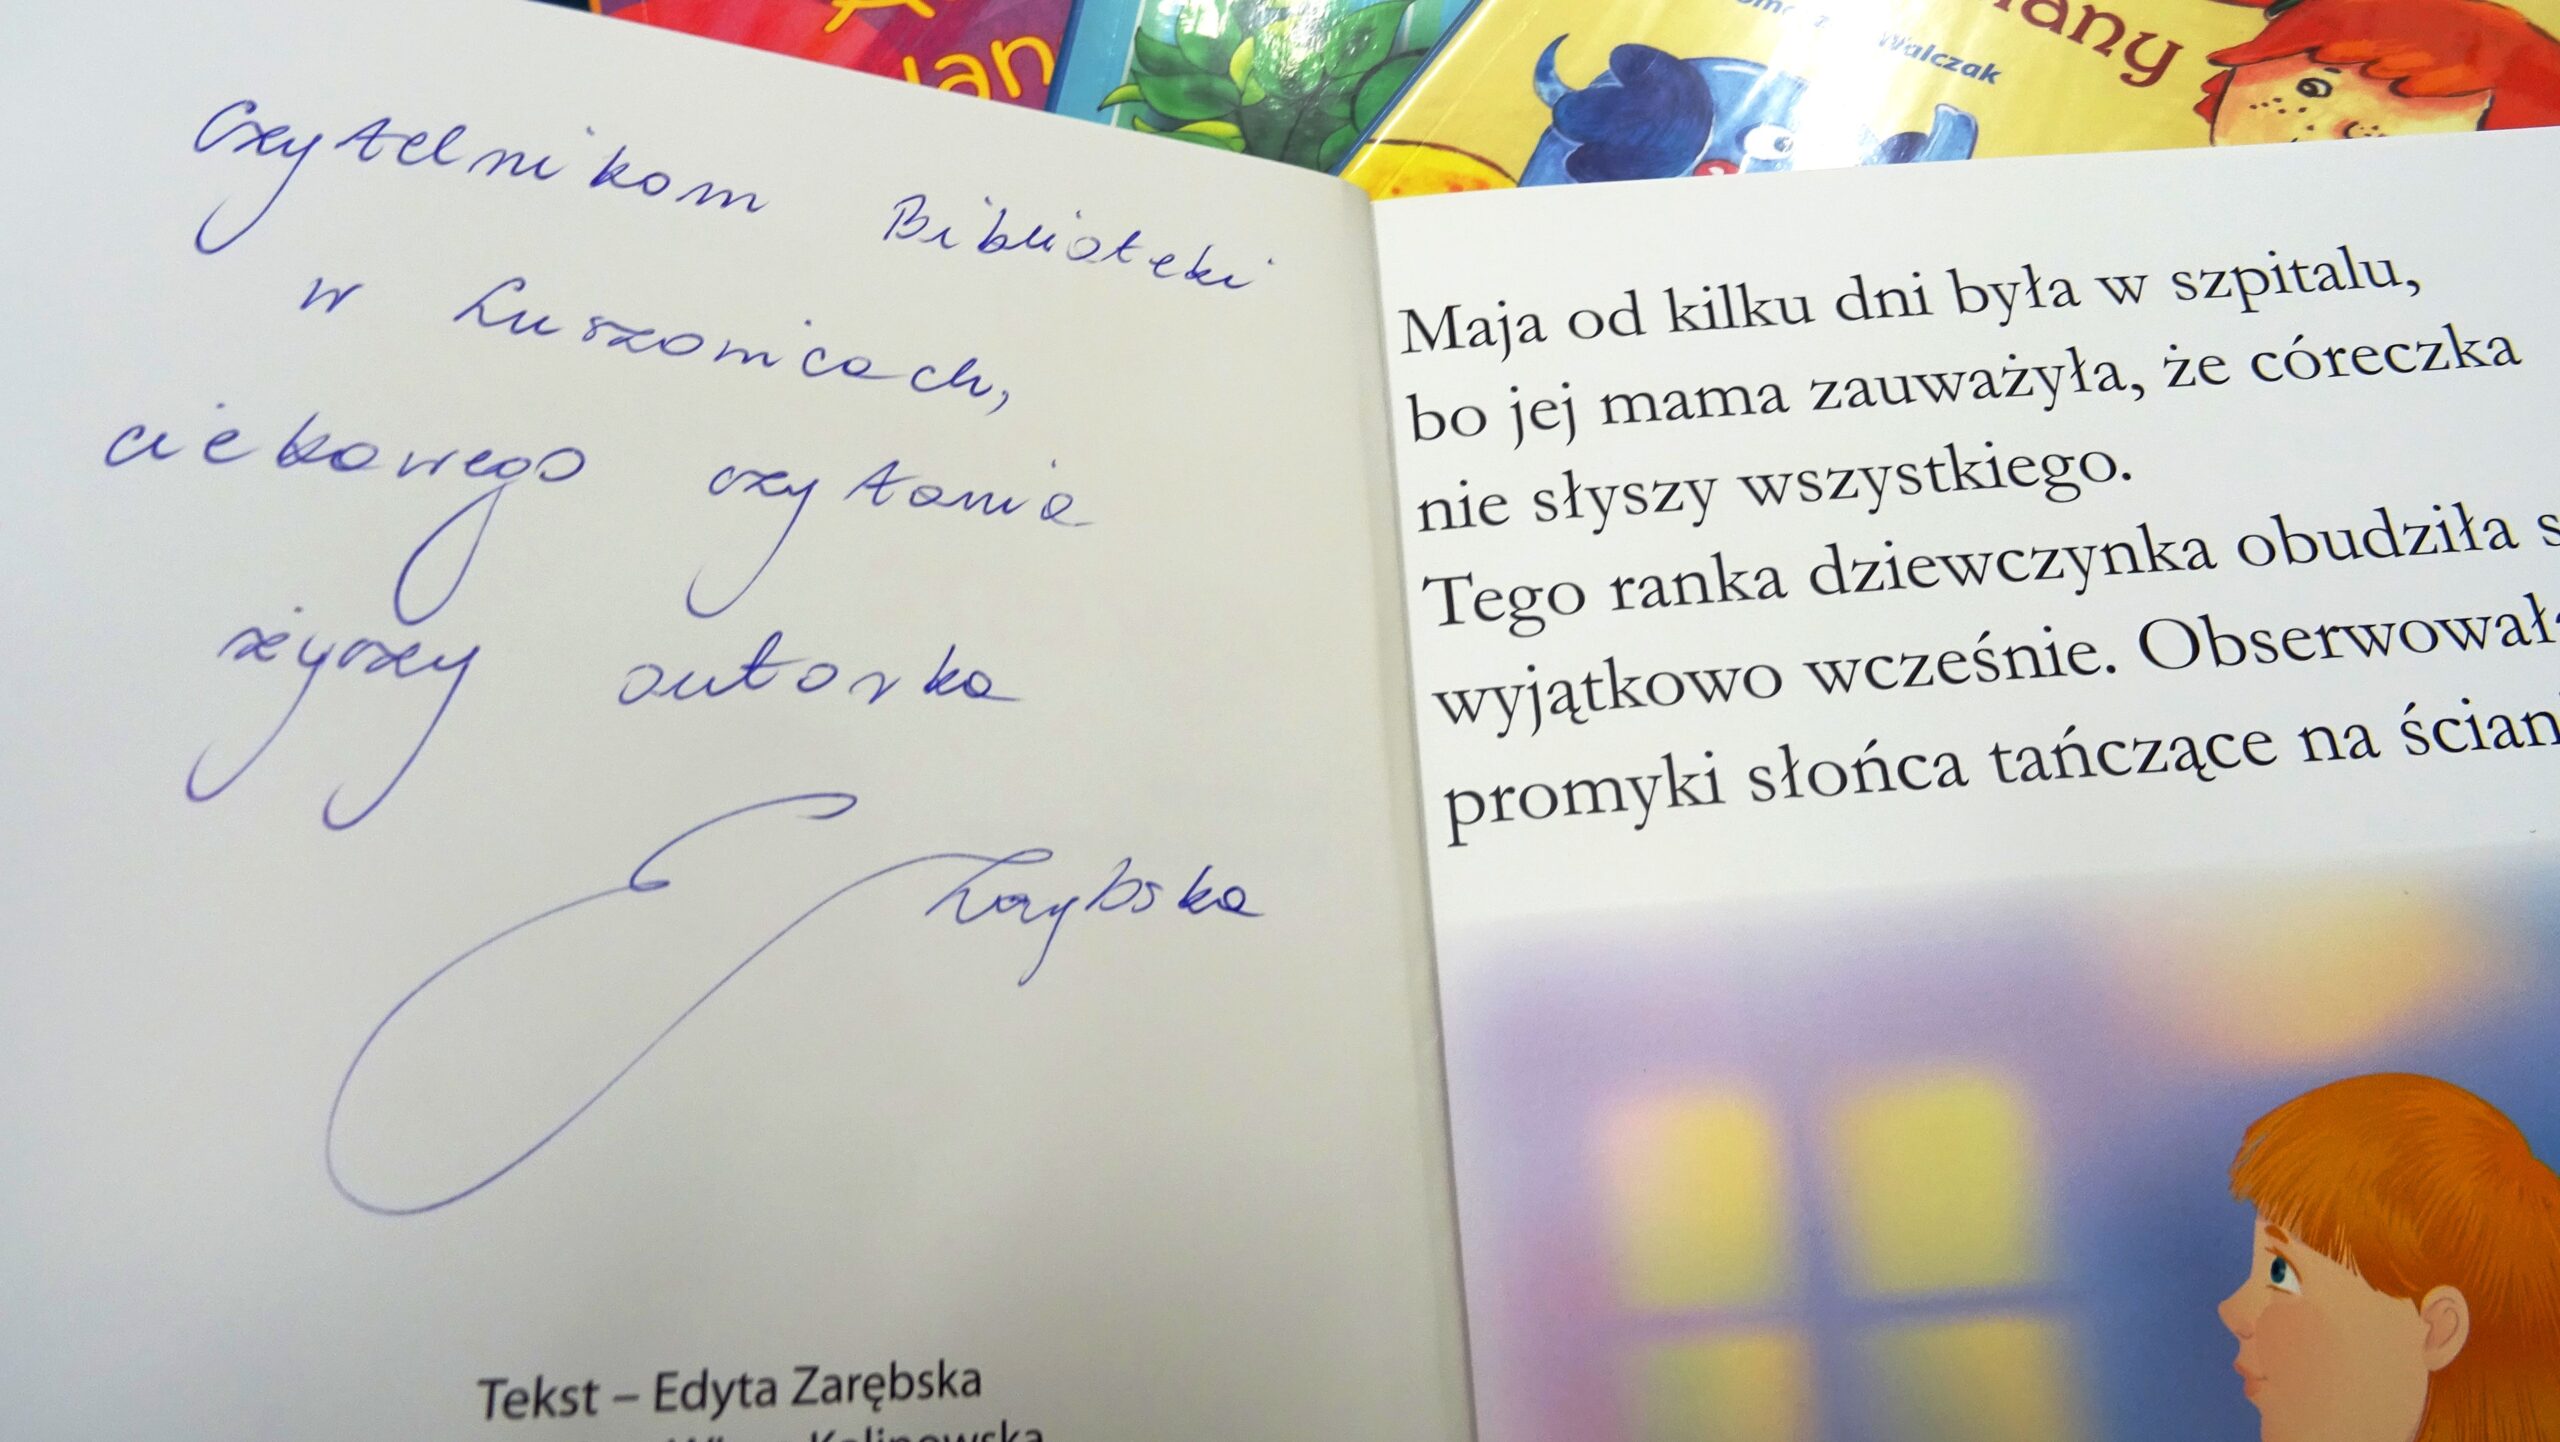 Czytelnikom Biblioteki
w Łuszowicach,
ciekawego czytania
życzy autorka
E Zarębska
Tekst – Edyta Zarębska
Kalinowska
Maja od kilku dni była w szpitalu,
bo jej mama zauważyła, że córeczka
nie słyszy wszystkiego.
Tego ranka dziewczynka obudziła s
wyjątkowo wcześnie. Obserwował
promyki słońca tańczące na ścian
Walczak